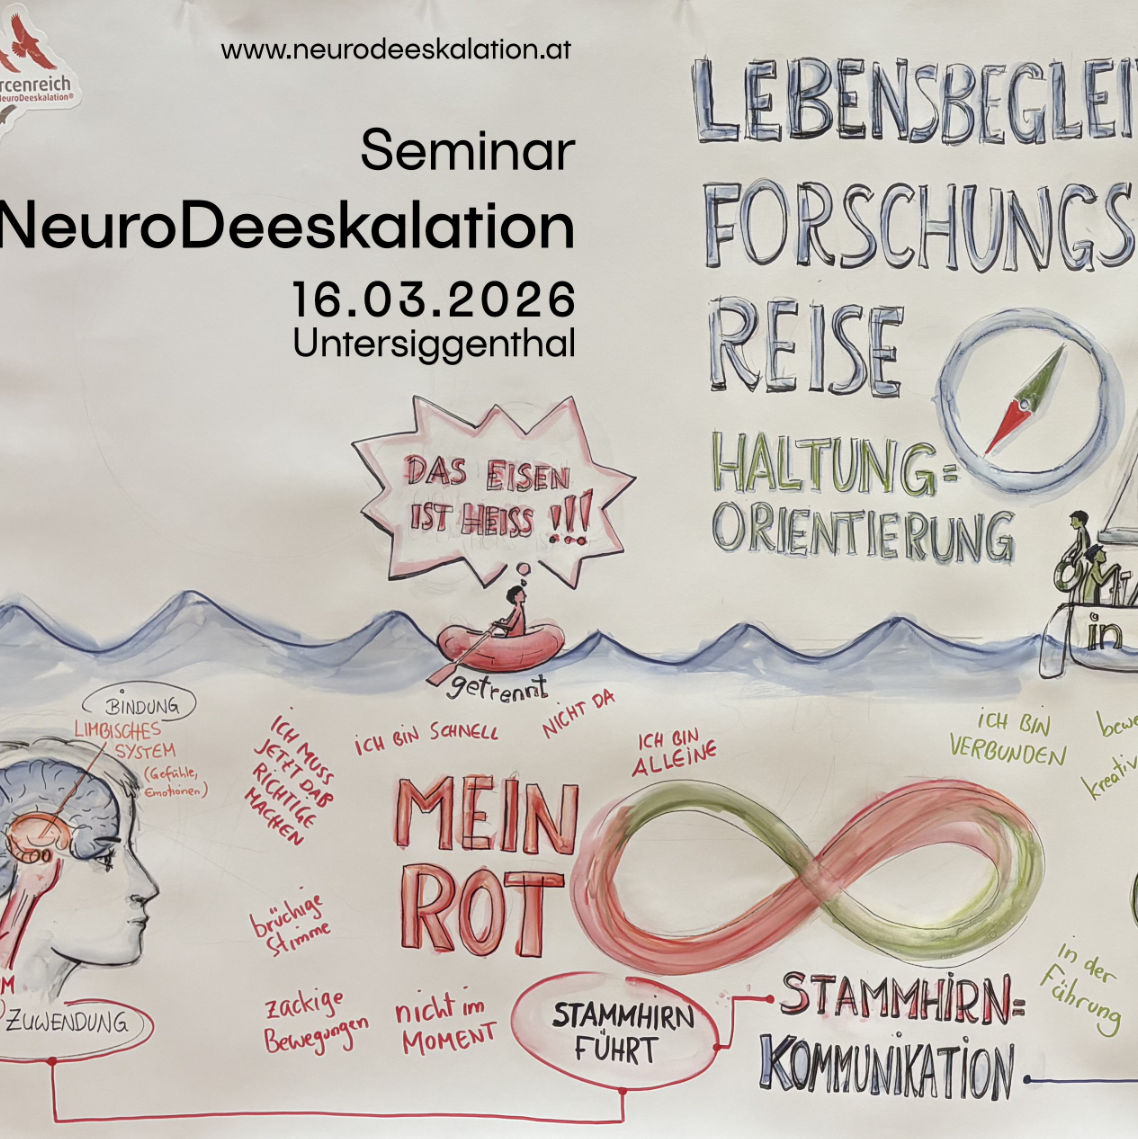 rcenreich
NeuroDeeskalation®
www.neurodeeskalation.at
Seminar
NeuroDeeskalation
16.03.2026
Untersiggenthal
LEBENSBEGLEI
FORSCHUNGS
REISE
HALTUNG=
ORIENTIERUNG
DAS EISEN
IST HEISS !!!
getrennt
in
BINDUNG
LIMBISCHES
SYSTEM
(Gefühle,
Emotionen)
ICH MUSS
JETZT DAS
RICHTIGE
MACHEN
ICH BIN SCHNELL
NICHT DA
ICH BIN
ALLEINE
ICH BIN
VERBUNDEN
bewe
kreativ
MEIN
ROT
brüchige
Stimme
zackige
Bewegungen
nicht im
MOMENT
STAMMHIRN
FÜHRT
STAMMHIRN=
KOMMUNIKATION
in der
Führung
M
ZUWENDUNG